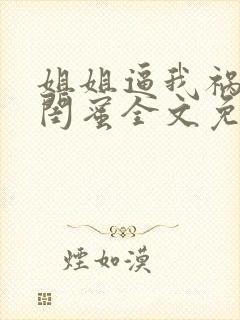 姐姐逼我祸
闺蜜全文免
煙如漠